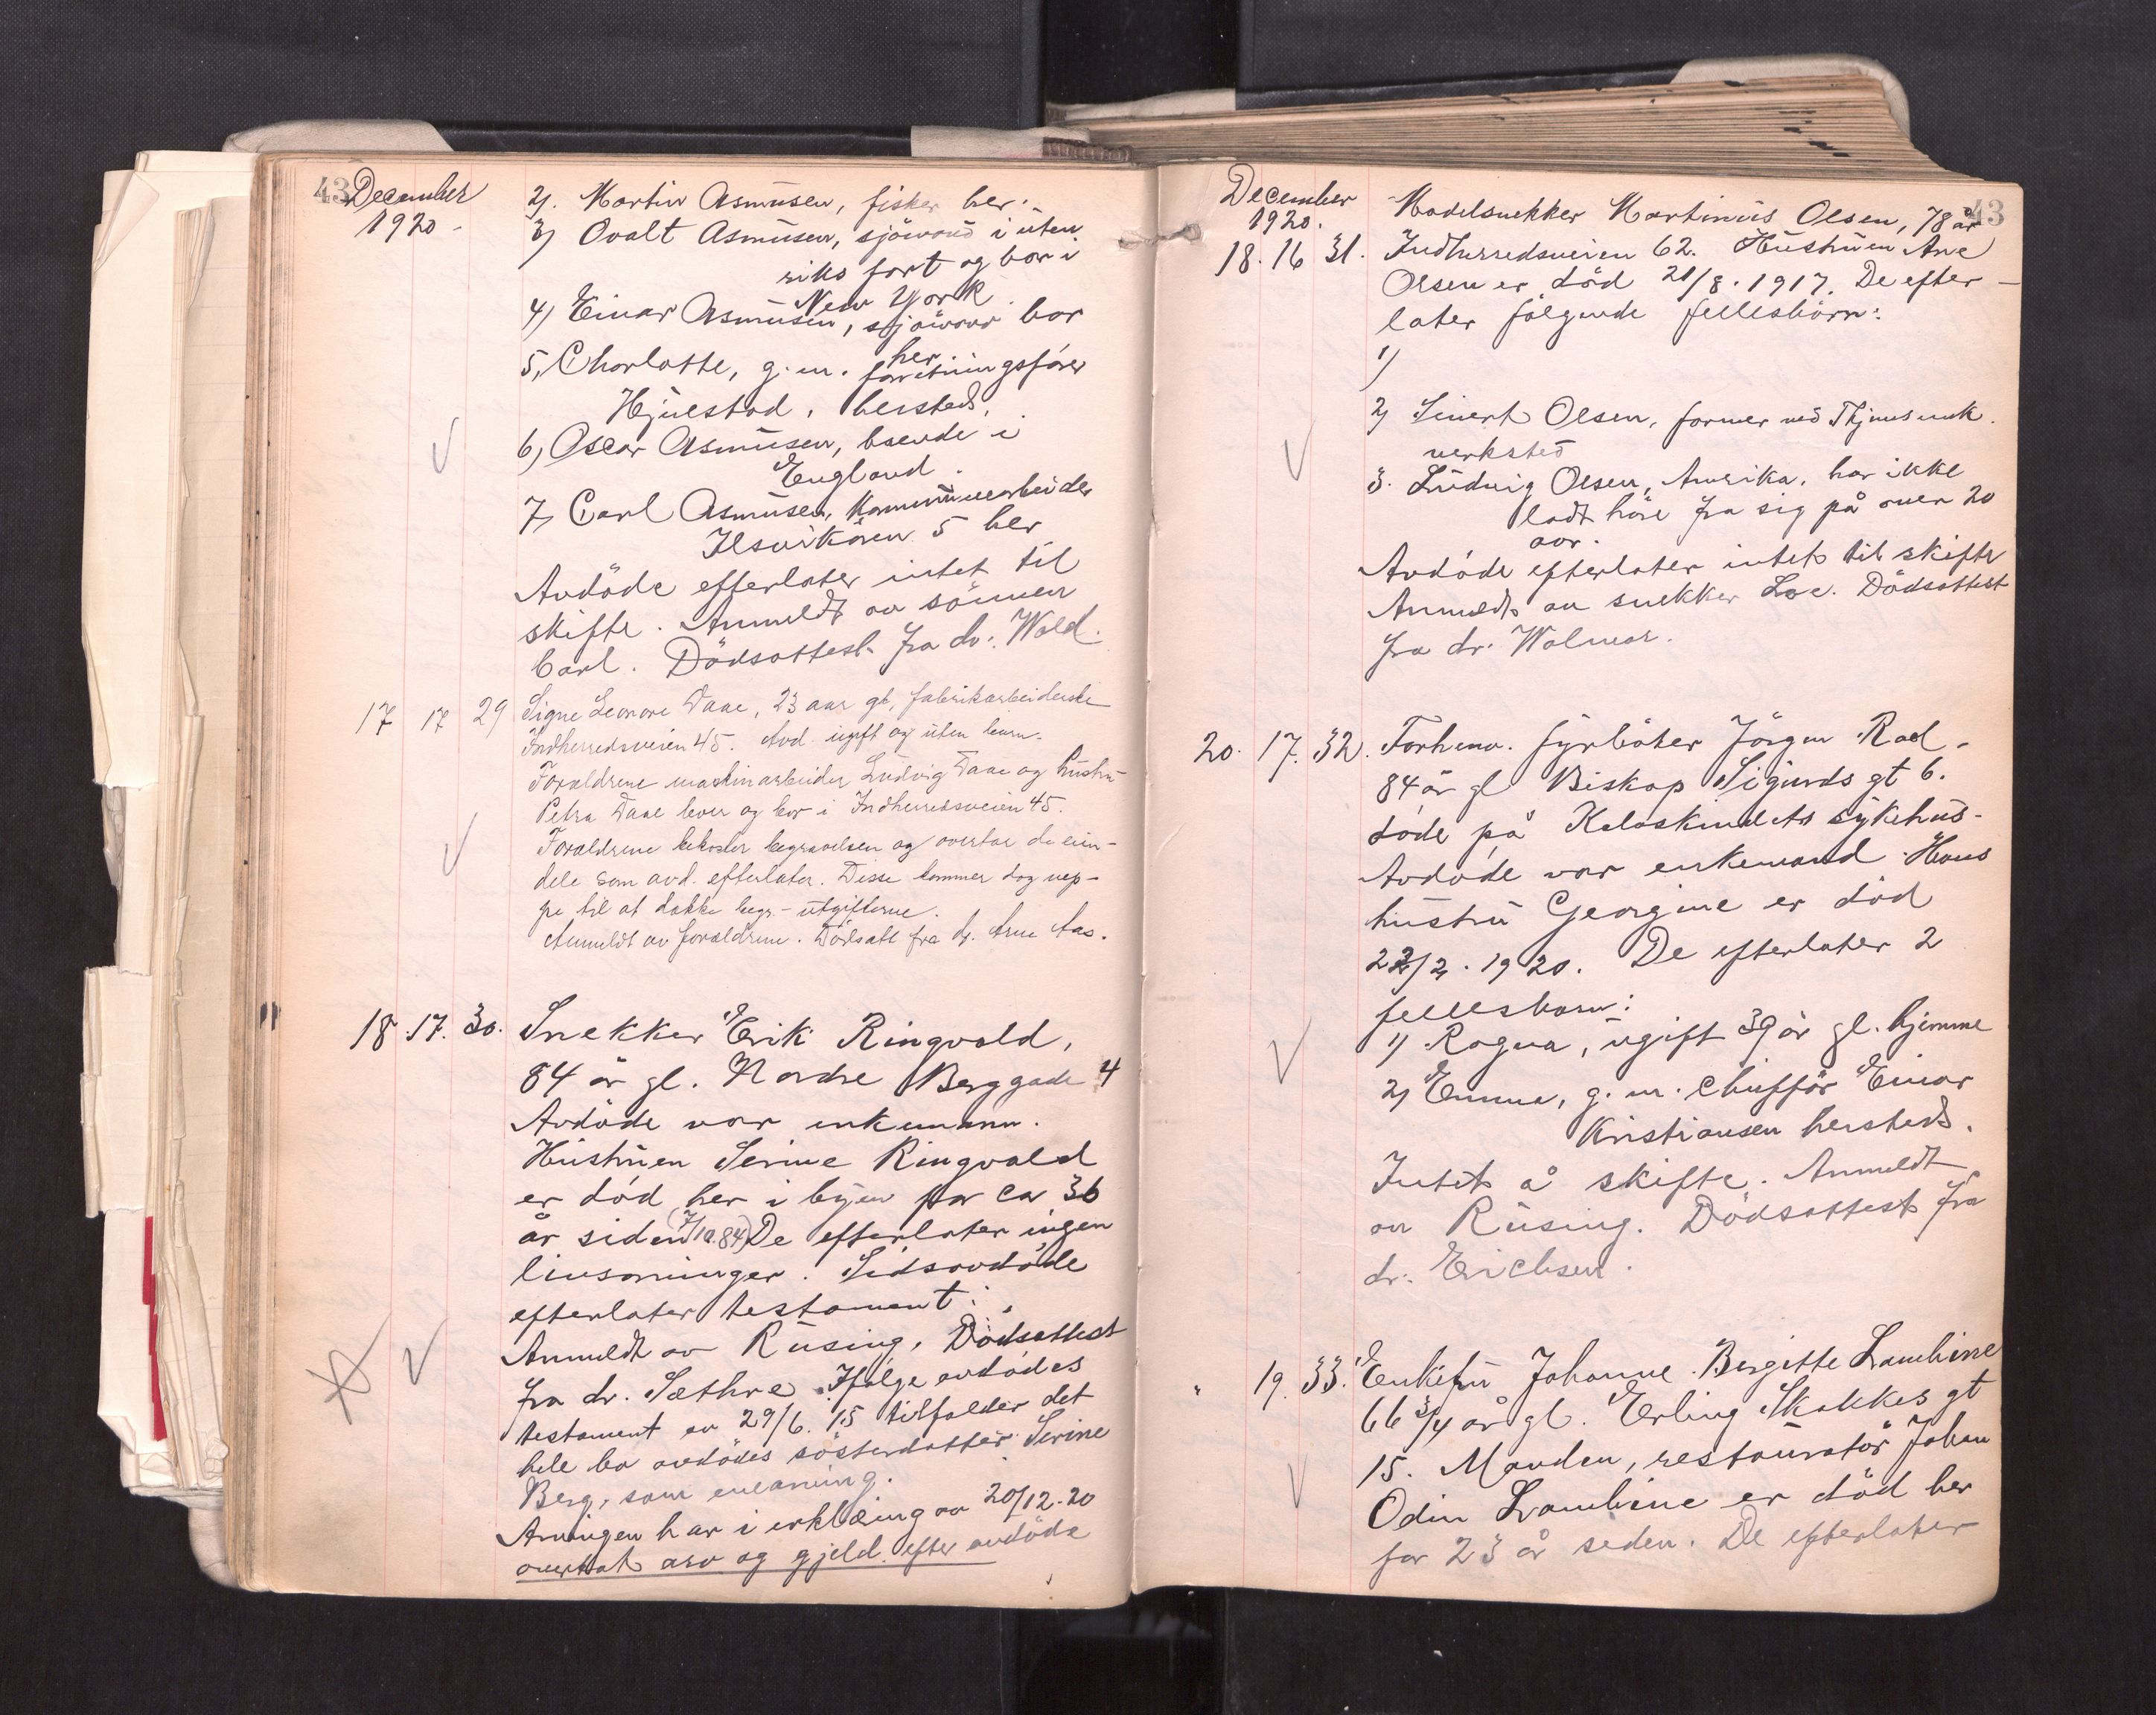 43 December
1920 -
2). Martin Asmusen, fisker her.
3) Ovalt Asmusen, sjömand i uten
riks fart og bor i
New York.
4) Einar Asmusen, sjömand bor
her.
5, Charlotte, g. m. forretningsförer
Hjuestad, hersteds,
6) Oscar Asmusen, boende i
England.
7, Carl Asmusen, Kommunearbeider
Ilsvikören 5 her
Avdöde efterlater intet til
skifte. Anmeldt av sönnen
Carl. Dödsattest fra dr. Wold.
17 17 29 Signe Leonore Daae, 23 aar gl, fabrikarbeiderske
Indherredsveien 45. Avd. ugift og uten barn.
Forældrene maskinarbeider Ludvig Daae og hustru
Petra Daae lever og bor i Indherredsveien 45.
Forældrene bekoster begravelsen og overtar de ein-
dele som avd. efterlater. Disse kommer dog nep-
pe til at dække begr.-utgifterne.
Anmeldt av forældrene. Dödsatt fra dr. Arne Aas.
18. 17. 30. Snekker Erik Ringvald,
84 år gl. Nordre Berggade 4
Avdöde var enkemann.
Hustruen Serine Ringvald
er död her i byen for ca 36
år siden (7/10.84) De efterlater ingen
livsarvinger. Sidstavdöde
efterlater testament.
Anmeldt av Rusing, Dödsattest
fra dr. Sæthre. Ifölge avdödes
testament av 29/6. 15 tilfalder det
hele bo avdödes sösterdatter Serine
Berg, som enearving.
Arvingen har i erklæring av 20/12.20
overtat arv og gjeld efter avdöde
December 43
1920.
18. 16 31. Modelsnekker Martinus Olsen, 78 år
Indherredsveien 62. Hustruen Ane
Olsen er död 21/8. 1917. De efter-
later fölgende fellesbörn:
1)
2) Sivert Olsen, former ved Thjems mek.
verksted
3. Ludvig Olsen, Amerika, har ikke
ladt höre fra sig på over 20
aar.
Avdöde efterlater intet til skifte
Anmeldt av snekker Loe. Dödsattest
fra dr. Wolmar.
20. 17. 32. Forhenv. fyrböter Jörgen Rod -
84 år gl Biskop Sigurds gt 6.
döde på Kalvskindets sykehus.
Avdöde var enkemand. Hans
hustru Georgine er död
22/2. 1920. De efterlater 2
fellesbarn:
1) Ragna, ugift 39 år gl. hjemme
2) Emma, g. m. chufför Einar
Kristiansen hersteds.
Intet å skifte. Anmeldt
av Rusing. Dödsattest fra
dr. Erichsen.
" 19. 33. Enkefru Johanne Bergitte Lambine
66 3/4 år gl. Erling Skakkes gt
15. Manden, restauratör Johan
Odin Lambine er död her
for 23 år siden. De efterlater